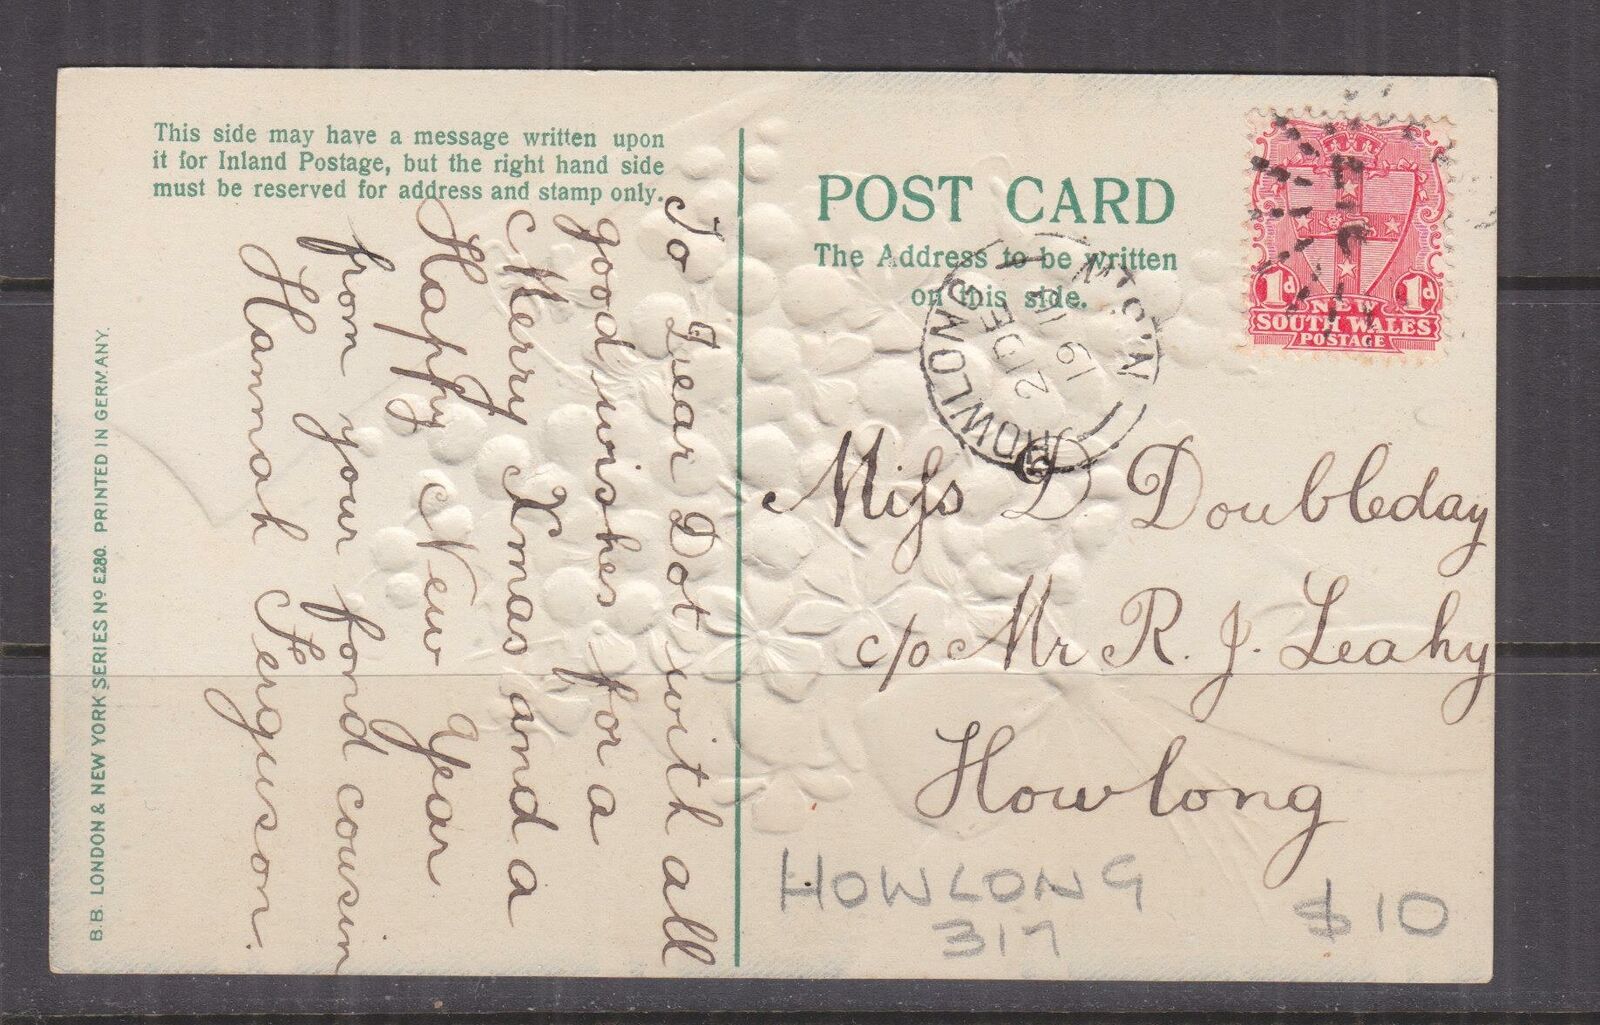 This side may have a message written upon
it for Inland Postage, but the right hand side
must be reserved for address and stamp only.
To Dear Dot with all
good wishes for a
Merry Xmas and a
Happy New Year
from your fond cousin
Hannah Ferguson.
B.B. LONDON & NEW YORK SERIES Nº E280. PRINTED IN GERMANY.
POST CARD
The Address to be written
on this side.
N.S.W
21 DE
19
1d 1d
NEW
SOUTH WALES
POSTAGE
Miss D Doubleday
c/o Mr R. J. Leahy
Howlong
HOWLONG
317
$10